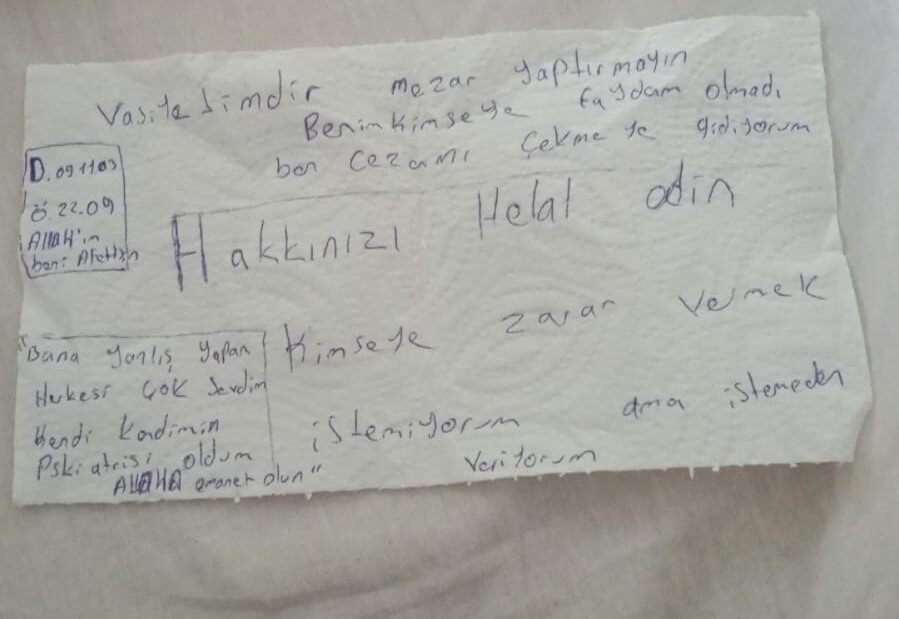 Vasiyetimdir mezar yaptırmayın
Benim kimseye faydam olmadı
ben cezamı çekmeye gidiyorum
D. 09.11.03
Ö 22.09
ALLAH'ın
beni Afettsin
Hakkınızı Helal edin
"Bana yanlış yapan
Herkesi çok sevdim
Kendi kendimin
Pskiatrisi oldum
ALLAHA emanet olun"
Kimseye zarar vermek
istemiyorum ama istemeden
veriyorum